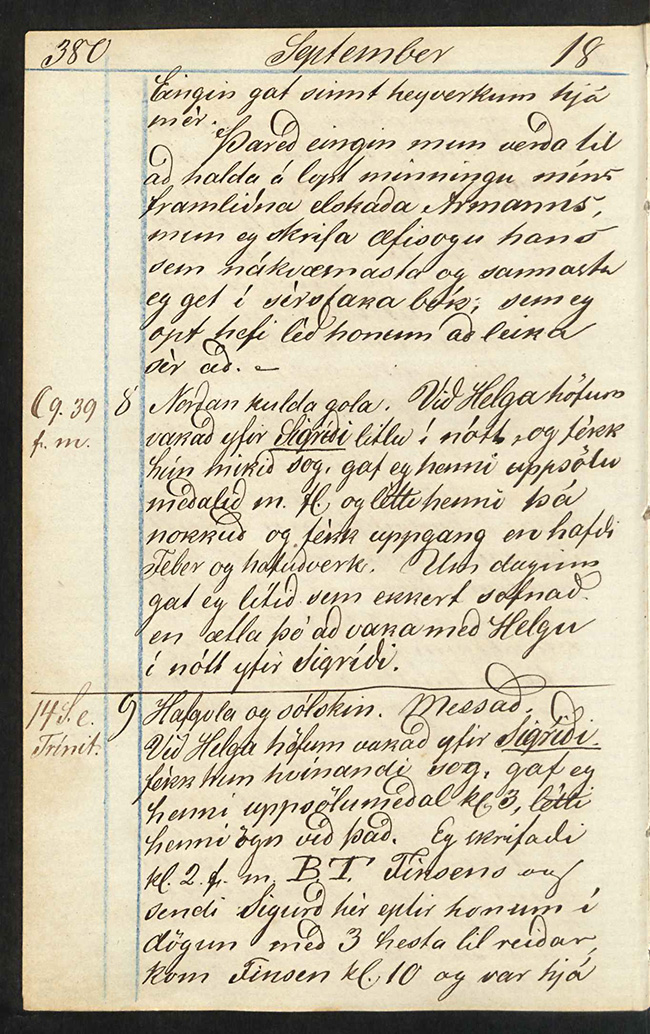 380 September 18
Eingin gat sinnt heyverkum hjá
mér.
Þareð eingin mun verda til
að halda á lopt minningu míns
framliðna elskaða Ármanns,
mun eg skrifa æfisögu hans
sem nákvæmasta og sannasta
eg get í sérstaka bók; sem eg
opt hefi léð honum að leika
sér að.
9.39
f. m.
8 Norðan kulda gola. Við Helga höfum
vakað yfir Sigríði litlu í nótt, og fékk
hún mikið sog, gaf eg henni uppsölu
meðalið m. fl. og létti henni þá
nokkuð og fékk uppgang en hafði
Feber og höfuðverk. Um daginn
gat eg lítið sem ekkert sofnað
en ætla þó að vaka með Helgu
í nótt yfir Sigríði.
14 S. e.
Trínit.
9 Hafgola og sólskin. Messað.
Við Helga höfum vakað yfir Sigríði.
fékk hun hvínandi sog, gaf eg
henni uppsölumeðal kl 3, létti
henni ögn við það. Eg skrifaði
kl. 2. f. m. B.T. Finsens og
sendi Sigurð hér eptir honum í
dögun með 3 hesta til reiðar,
kom Finsen kl. 10 og var hjá